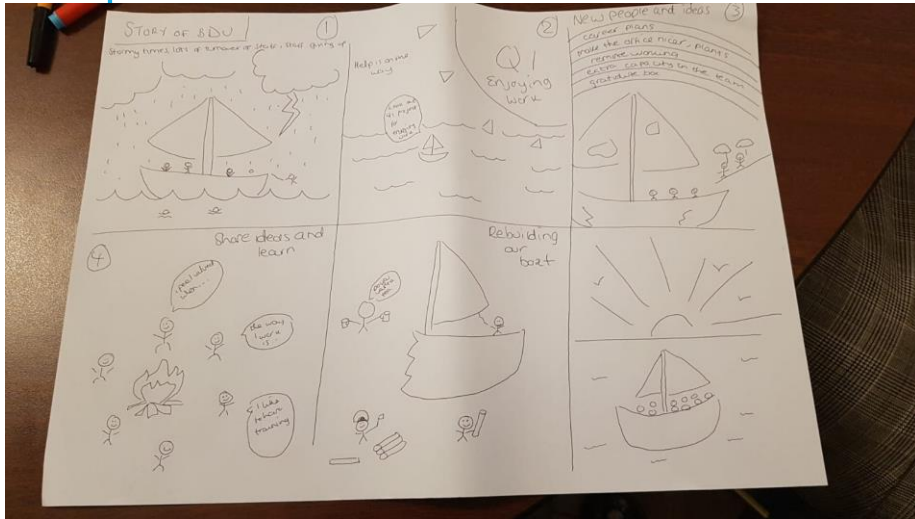 STORY OF BDU
1
Stormy times, lots of turnover of staff, boss giving up
Help is on the way
2
Q1
Enjoying
work
New people and ideas
3
career plans
make the office nicer, plants
remote working
extra capacity in the team
gratitude box
4
Share ideas and
learn
I feel valued
when...
the way
I work
is..
I like
to have
training
Rebuilding
our
boat